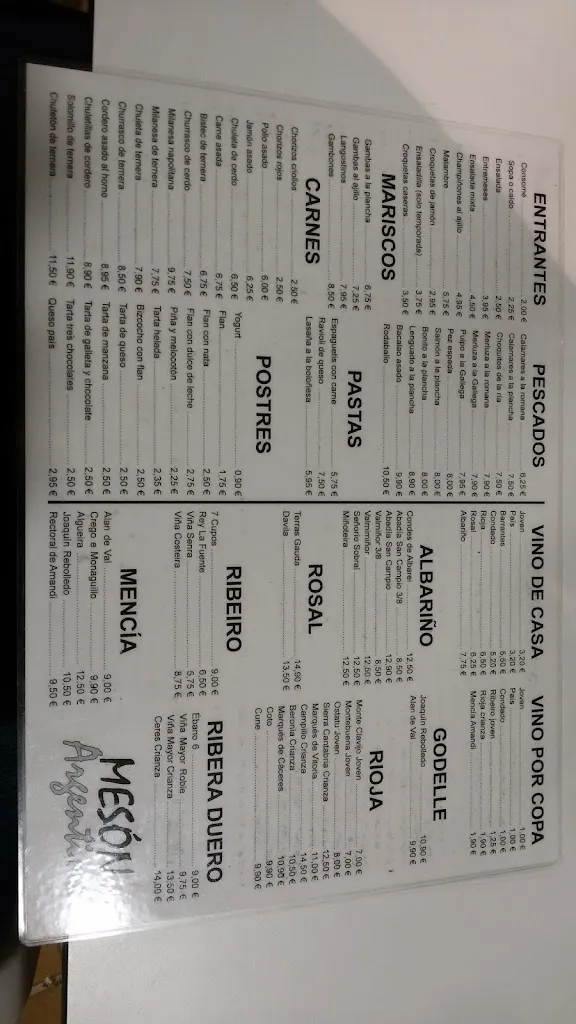 ENTRANTES
Consomé 2,00 €
Sopa o caldo 2,25 €
Ensalada 2,50 €
Entremeses 3,95 €
Ensalada mixta 4,50 €
Champiñones al ajillo 4,95 €
Matambre 5,75 €
Croquetas de jamón 2,95 €
Ensaladilla (solo temporada) 3,75 €
Croquetas caseras 3,50 €
MARISCOS
Gambas a la plancha 6,75 €
Gambas al ajillo 7,25 €
Langostinos 7,95 €
Gambones 8,50 €
CARNES
Chorizos criollos 2,50 €
Chorizos rojos 2,50 €
Pollo asado 6,00 €
Jamón asado 6,25 €
Chuleta de cerdo 6,50 €
Carne asada 6,75 €
Bistec de ternera 6,75 €
Churrasco de cerdo 7,50 €
Milanesa napolitana 9,75 €
Milanesa de ternera 7,75 €
Chuleta de ternera 7,90 €
Churrasco de ternera 8,50 €
Cordero asado al horno 8,95 €
Chuletillas de cordero 8,90 €
Solomillo de ternera 11,90 €
Chuletón de ternera 11,50 €
PESCADOS
Calamares a la romana 6,25 €
Calamares a la plancha 7,50 €
Choquitos de la ría 7,50 €
Merluza a la romana 7,90 €
Merluza a la Gallega 7,90 €
Pulpo a la Gallega 7,95 €
Pez espada 8,00 €
Salmón a la plancha 8,00 €
Bonito a la plancha 8,00 €
Lenguado a la plancha 8,90 €
Bacalao asado 9,90 €
Rodaballo 10,50 €
PASTAS
Espaguetis con carne 5,75 €
Ravioli de queso 7,50 €
Lasaña a la boloñesa 5,95 €
POSTRES
Yogurt 0,90 €
Flan 1,75 €
Flan con nata 2,50 €
Flan con dulce de leche 2,75 €
Piña y melocotón 2,25 €
Tarta helada 2,35 €
Bizcocho con flan 2,50 €
Tarta de queso 2,50 €
Tarta de manzana 2,50 €
Tarta de galleta y chocolate 2,50 €
Tarta tres chocolates 2,50 €
Queso país 2,95 €
VINO DE CASA
Joven 3,20 €
País 3,20 €
Barrantes 5,50 €
Condado 5,20 €
Rioja 6,50 €
Rosal 6,25 €
Albariño 7,75 €
ALBARIÑO
Condes de Albarei 12,50 €
Abadía San Campio 3/8 8,50 €
Abadía San Campio 12,90 €
Valmiñor 3/8 8,50 €
Valmiñor 12,50 €
Señorío Sobral 12,50 €
Miñoteira 12,50 €
ROSAL
Terras Gauda 14,90 €
Davila 13,50 €
RIBEIRO
7 Cupos 9,00 €
Rey La Fuente 6,50 €
Viña Senra 5,75 €
Viña Costeira 8,75 €
MENCÍA
Alan de Val 9,00 €
Crego e Monaguillo 9,90 €
Algueira 12,50 €
Joaquín Rebolledo 10,50 €
Rectoral de Amandi 9,50 €
VINO POR COPA
Joven 1,00 €
País 1,00 €
Condado 1,00 €
Ribeiro joven 1,25 €
Rioja crianza 1,90 €
Mencía Amandi 1,90 €
GODELLE
Joaquín Rebolledo 10,90 €
Alan de Val 9,90 €
RIOJA
Monte Clavijo Joven 7,00 €
Montebuena Joven 7,00 €
Ostatu Joven 8,00 €
Sierra Cantabria Crianza 12,50 €
Marqués de Vitoria 11,00 €
Campillo Crianza 14,50 €
Beronia Crianza 10,50 €
Marqués de Cáceres 10,90 €
Coto 9,90 €
Cune 9,90 €
RIBERA DUERO
Ébano 6 9,00 €
Viña Mayor Roble 9,75 €
Viña Mayor Crianza 13,50 €
Ceres Crianza 14,00 €
MESÓN
Argenti